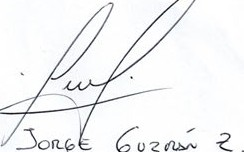 JORGE GUZMÁN Z.